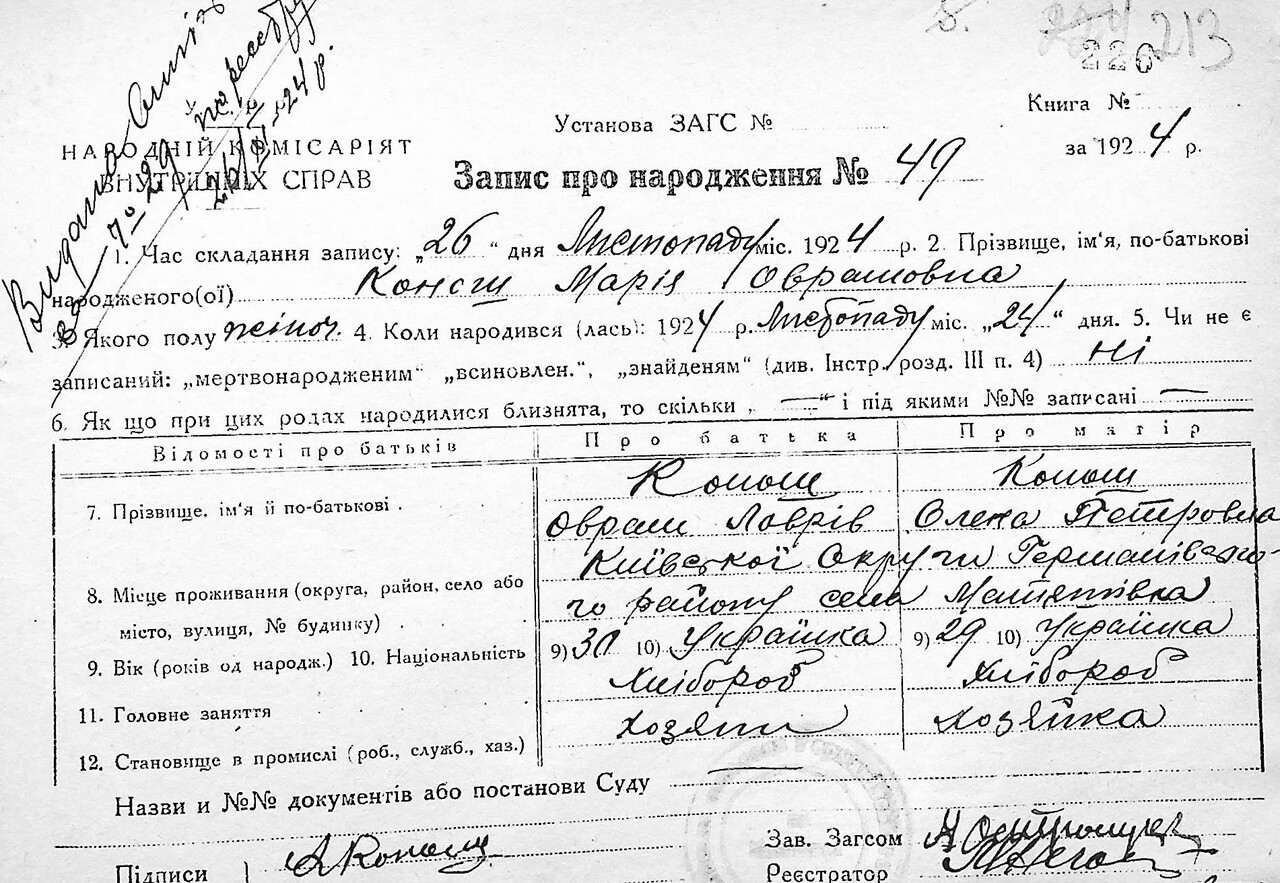 213
226
Книга №
Установа ЗАГС №
за 1924 р.
НАРОДНІЙ КОМІСАРІЯТ
ВНУТРІШНІХ СПРАВ
Запис про народження № 49
Видано
7º 29 по реєстру
26/XI-24 р.
1. Час складання запису: „26“ дня Листопаду міс. 1924 р. 2. Прізвище, ім'я, по-батькові
народженого(ої) Конощ Марія Оврамовна
3. Якого полу жіноч. 4. Коли народився (лась): 1924 р. Листопаду міс. „24“ дня. 5. Чи не є
записаний: „мертвонародженим“ „всиновлен.“, „знайденям“ (див. Інстр. розд. III п. 4) Ні
6. Як що при цих родах народилися близнята, то скільки „—“ і під якими №№ записані —
Відомості про батьків Про батька Про матір
7. Прізвище, ім'я й по-батькові . Конощ Конощ
Оврам Лаврів Олена Петровна
8. Місце проживання (округа, район, село або Київської Округи Германівсько-
місто, вулиця, № будинку) . го району села Матяшівка
9. Вік (років од народж.) 10. Національність 9) 30 10) Українка 9) 29 10) Українка
11. Головне заняття Хлібороб Хлібороб
12. Становище в промислі (роб., служб., хаз.) Хозяин Хозяйка
Назви и №№ документів або постанови Суду —
Підписи } А Конощ
Зав. Загсом
Реєстратор